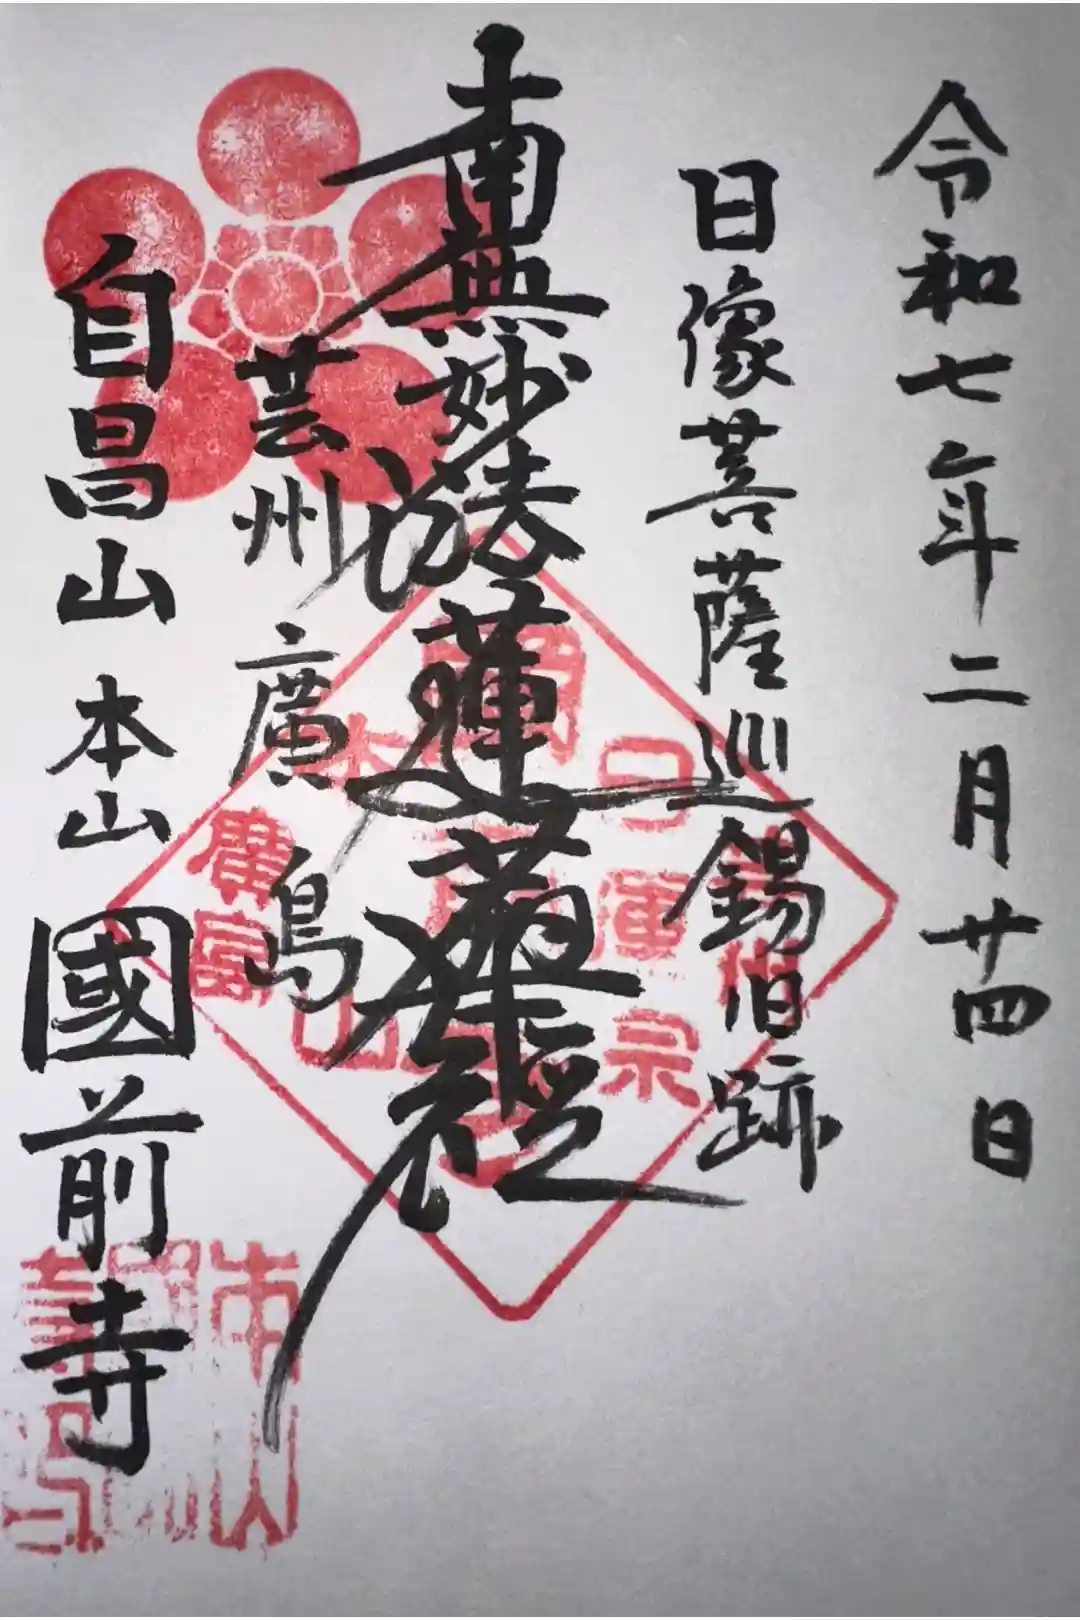 令和七年二月廿四日
日像菩薩巡錫旧跡
南無妙法蓮華経
芸州廣島
自昌山本山國前寺
日蓮宗
廣島
本山